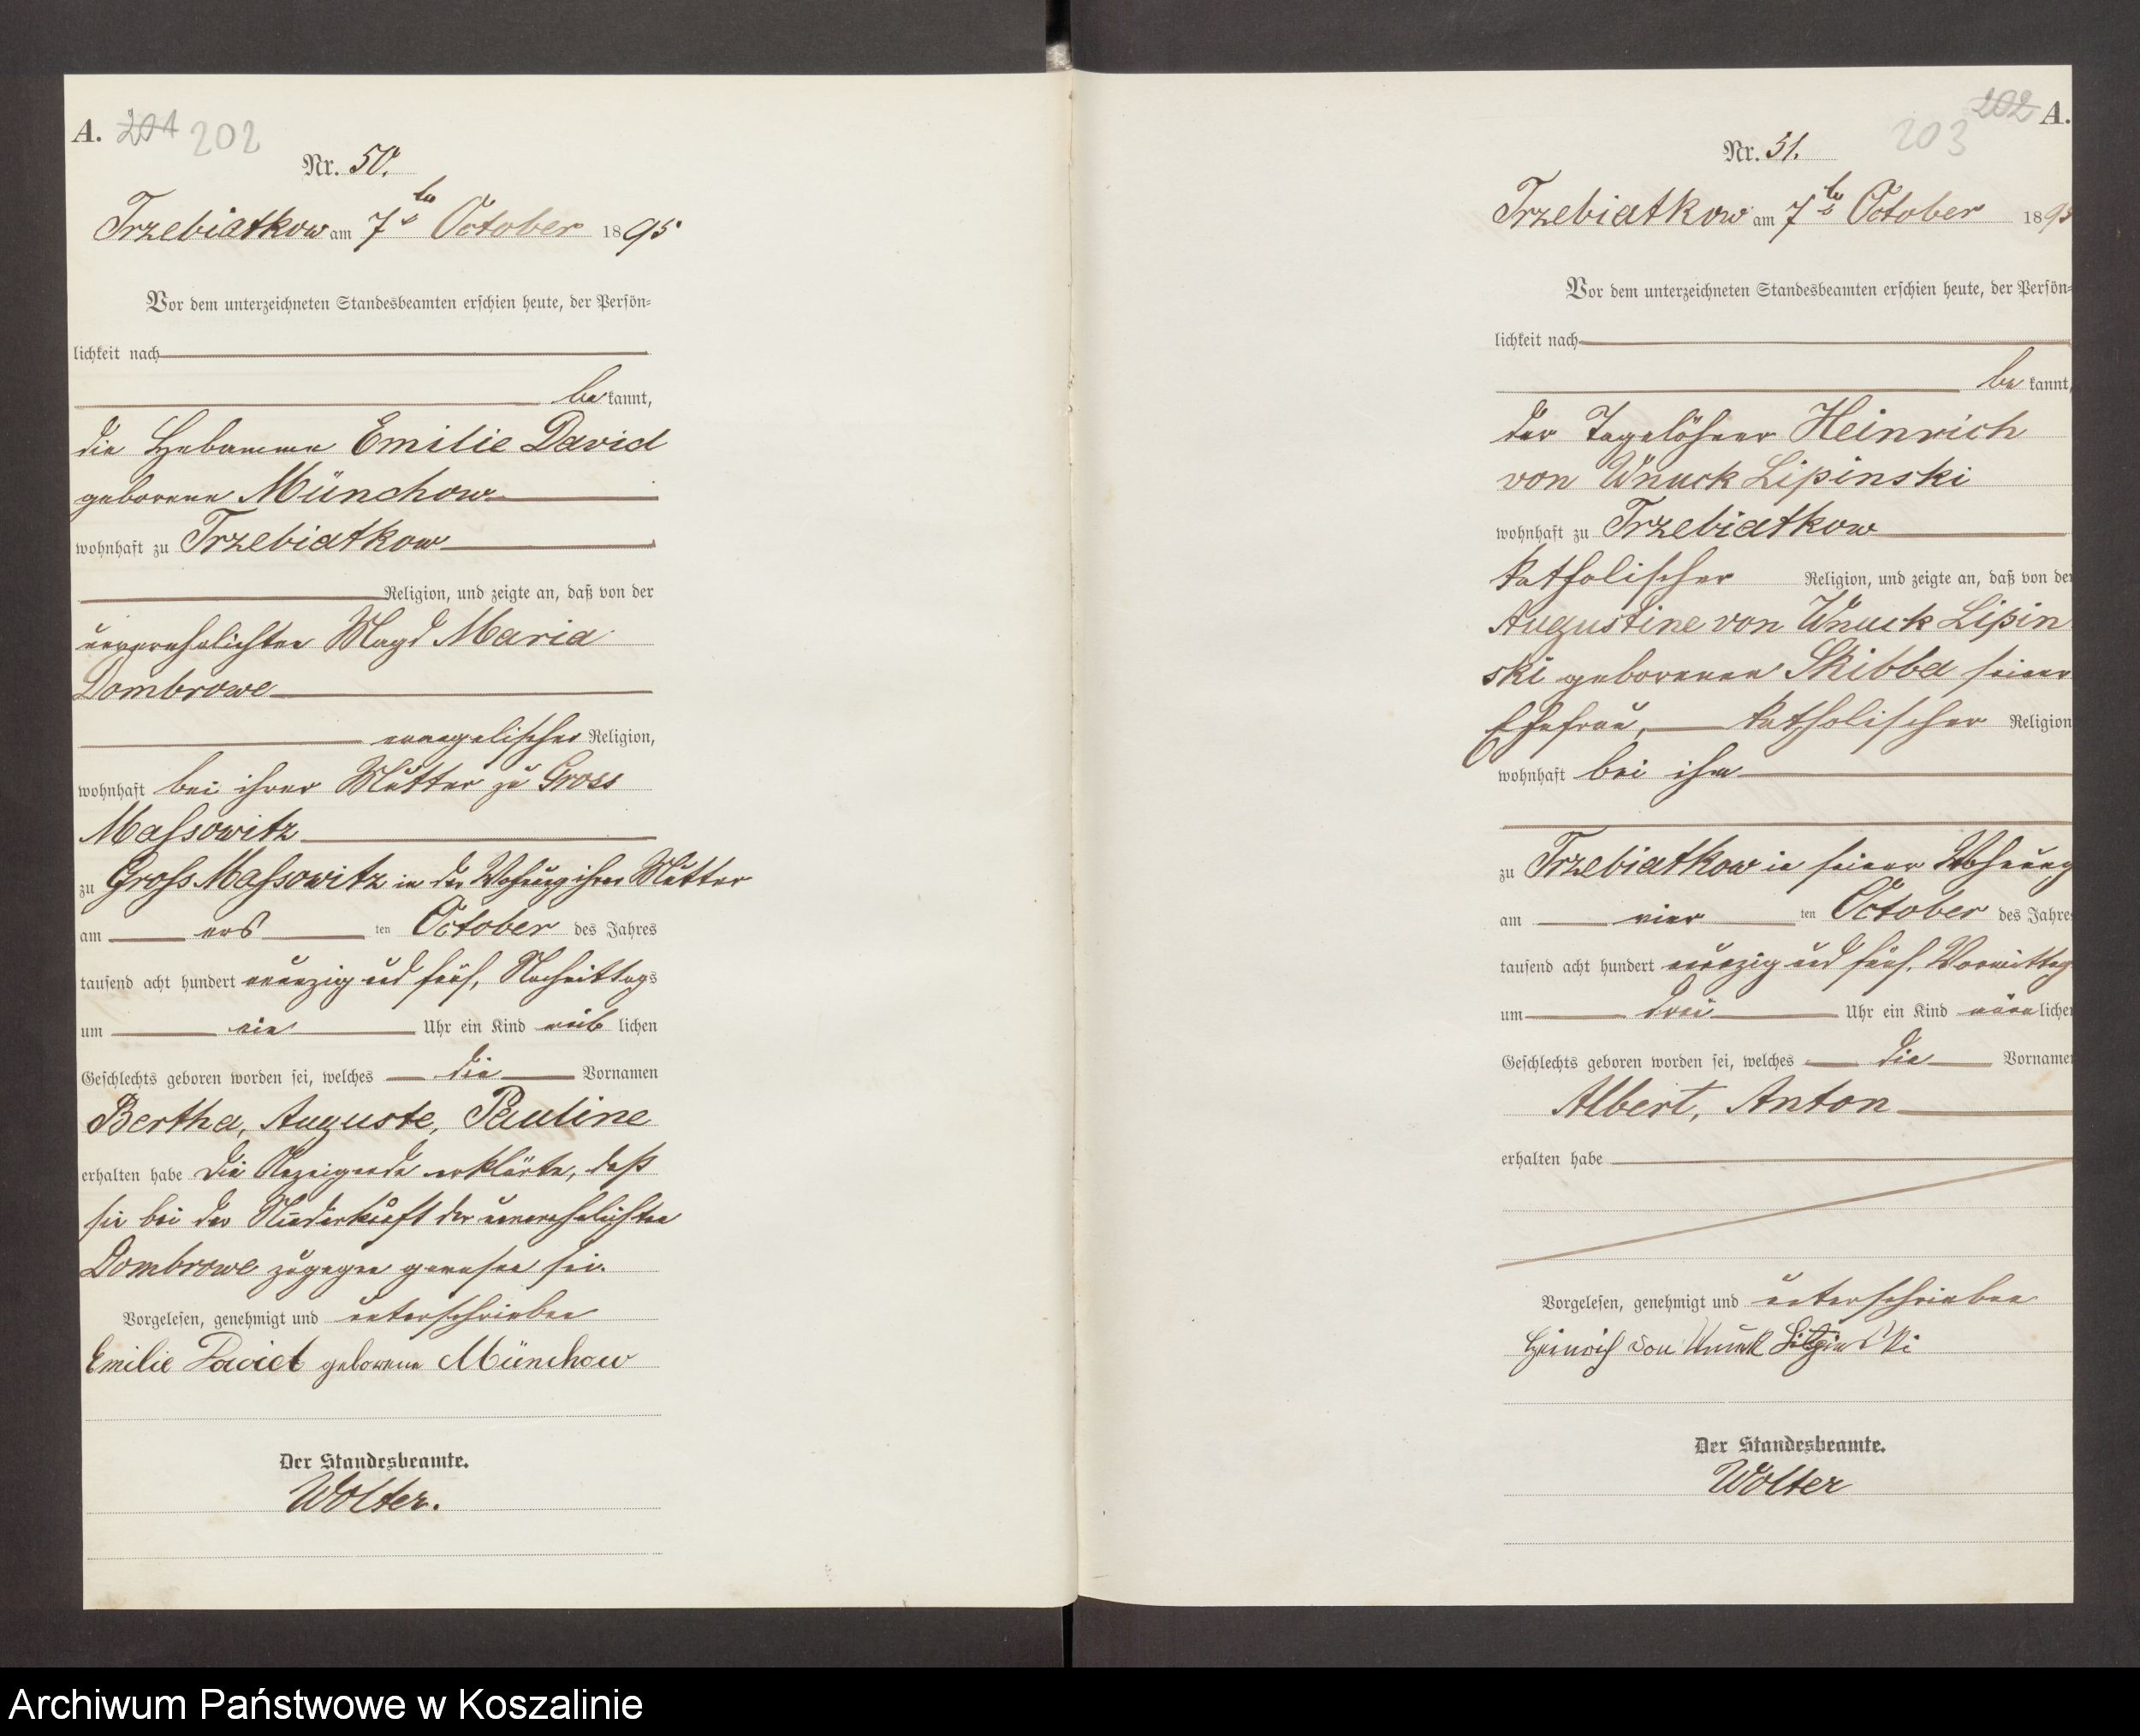 A. 201 202
Nr. 50.
Trzebiatkow am 7ten October 1895
Vor dem unterzeichneten Standesbeamten erschien heute, der Persön-
lichkeit nach
bekannt,
die Hebamme Emilie David
geborene Münchow
wohnhaft zu Trzebiatkow
Religion, und zeigte an, daß von der
unverehelichten Magd Maria
Dombrowe
evangelischer Religion,
wohnhaft bei ihrer Mutter zu Gross
Massowitz
zu Gross Massowitz in der Wohnung ihrer Mutter
am ers ten October des Jahres
tausend acht hundert neunzig und fünf, Nachmittags
um ein Uhr ein Kind weiblichen
Geschlechts geboren worden sei, welches die Vornamen
Bertha, Auguste, Pauline
erhalten habe Die Anzeigende erklärte, daß
sie bei der Niederkunft der unverehelichten
Dombrowe zugegen gewesen sei.
Vorgelesen, genehmigt und unterschrieben
Emilie David geborene Münchow
Der Standesbeamte.
Wolter.
202 A.
203
Nr. 51.
Trzebiatkow am 7ten October 1895
Vor dem unterzeichneten Standesbeamten erschien heute, der Persön-
lichkeit nach
bekannt,
der Tagelöhner Heinrich
von Wnuck Lipinski
wohnhaft zu Trzebiatkow
katholischer Religion, und zeigte an, daß von der
Augustine von Wnuck Lipin
ski geborenen Skibba seiner
Ehefrau, katholischer Religion
wohnhaft bei ihm
zu Trzebiatkow in seiner Wohnung
am vier ten October des Jahres
tausend acht hundert neunzig und fünf, Vormittag
um drei Uhr ein Kind männlichen
Geschlechts geboren worden sei, welches die Vornamen
Albert, Anton
erhalten habe
Vorgelesen, genehmigt und unterschrieben
Heinrich von Wnuck Lipinski
Der Standesbeamte.
Wolter
Archiwum Państwowe w Koszalinie